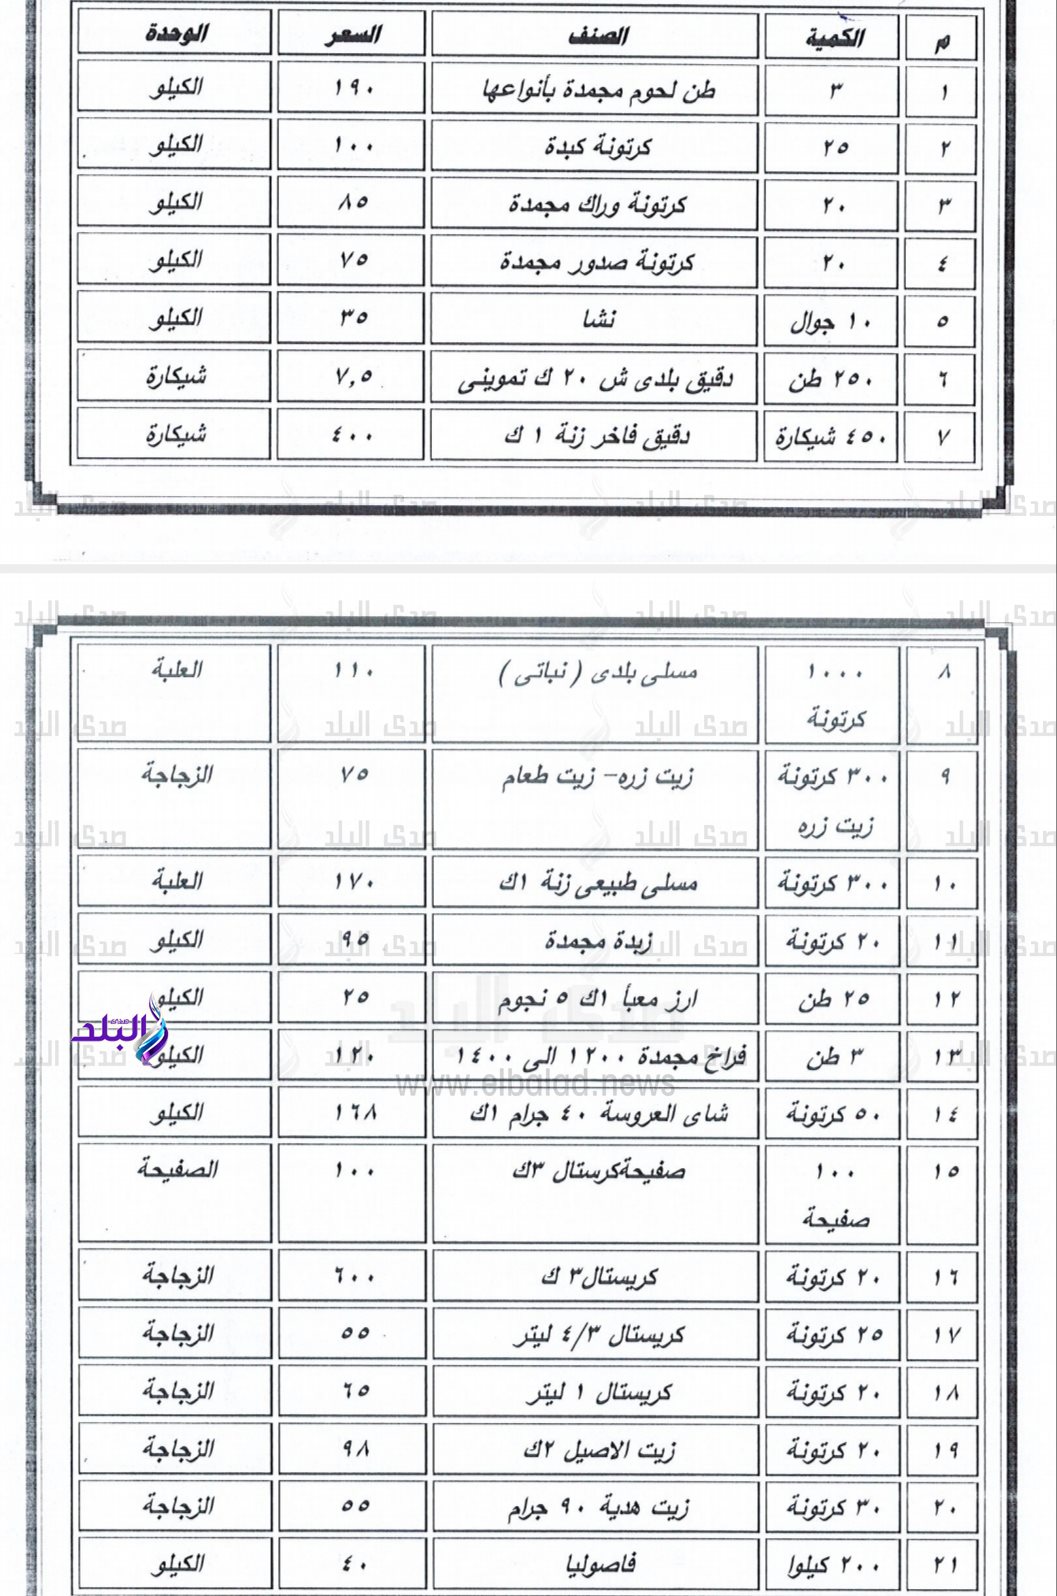 م الكمية الصنف السعر الوحدة
١ ٣ طن لحوم مجمدة بأنواعها ١٩٠ الكيلو
٢ ٢٥ كرتونة كبدة ١٠٠ الكيلو
٣ ٢٠ كرتونة وراك مجمدة ٨٥ الكيلو
٤ ٢٠ كرتونة صدور مجمدة ٧٥ الكيلو
٥ ١٠ جوال نشا ٣٥ الكيلو
٦ ٢٥٠ طن دقيق بلدى ش ٢٠ ك تموينى ٧,٥ شيكارة
٧ ٤٥٠ شيكارة دقيق فاخر زنة ١ ك ٤٠٠ شيكارة
٨ ١٠٠٠ مسلى بلدى ( نباتى ) ١١٠ العلبة
كرتونة
٩ ٣٠٠ كرتونة زيت زره- زيت طعام ٧٥ الزجاجة
زيت زره
١٠ ٣٠٠ كرتونة مسلى طبيعى زنة ١ك ١٧٠ العلبة
١١ ٢٠ كرتونة زبدة مجمدة ٩٥ الكيلو
١٢ ٢٥ طن ارز معبأ ١ك ٥ نجوم ٢٥ الكيلو
١٣ ٣ طن فراخ مجمدة ١٢٠٠ الى ١٤٠٠ ١٢٠ الكيلو
صدى البلد
www.elbalad.news
١٤ ٥٠ كرتونة شاى العروسة ٤٠ جرام ١ك ١٦٨ الكيلو
١٥ ١٠٠ صفيحةكرستال ٣ك ١٠٠ الصفيحة
صفيحة
١٦ ٢٠ كرتونة كريستال٣ ك ٦٠٠ الزجاجة
١٧ ٢٥ كرتونة كريستال ٤/٣ ليتر ٥٥ الزجاجة
١٨ ٢٠ كرتونة كريستال ١ ليتر ٦٥ الزجاجة
١٩ ٢٠ كرتونة زيت الاصيل ٢ك ٩٨ الزجاجة
٢٠ ٣٠ كرتونة زيت هدية ٩٠ جرام ٥٥ الزجاجة
٢١ ٢٠٠ كيلوا فاصوليا ٤٠ الكيلو